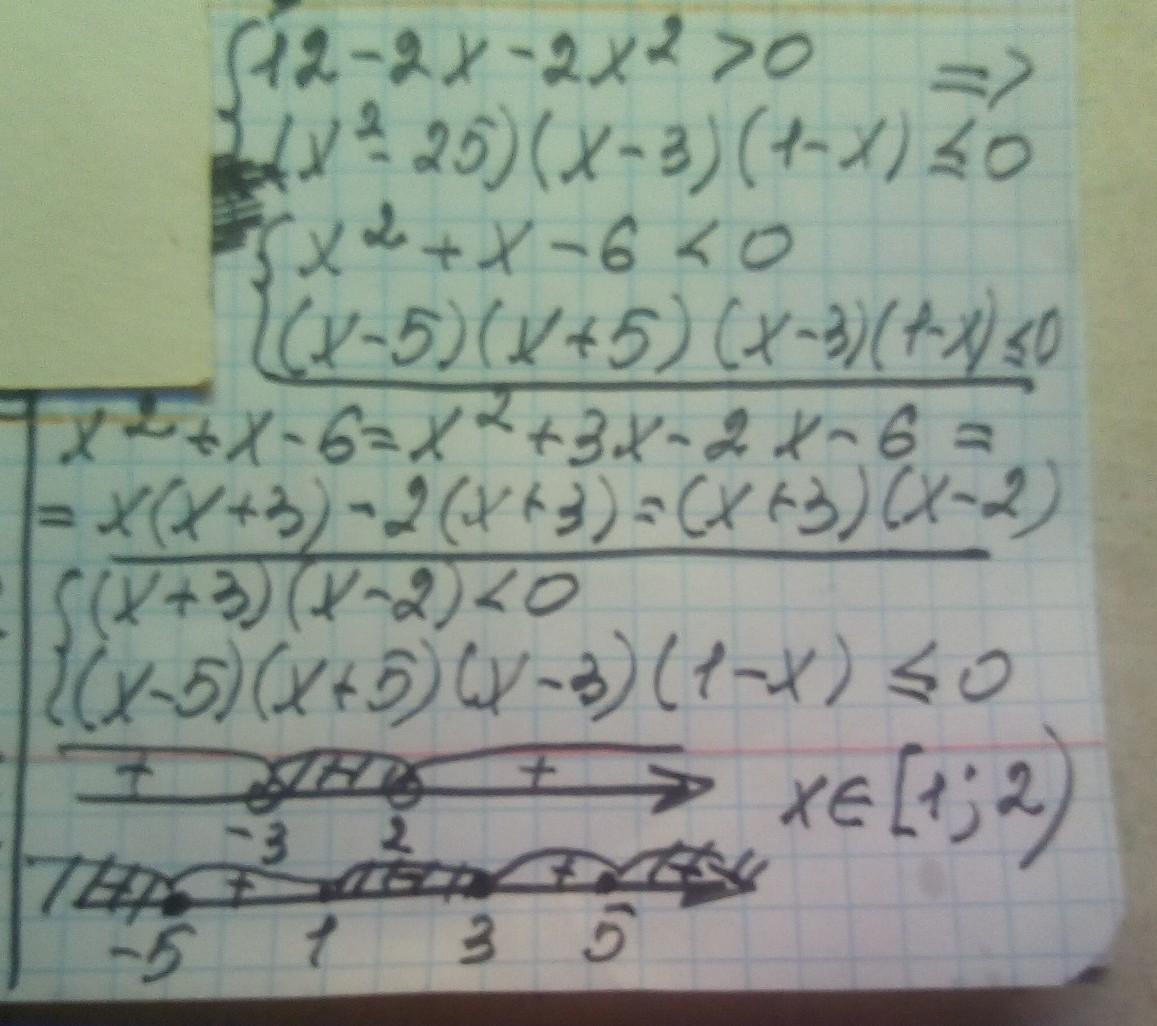 {12-2x-2x² >0 =>
(x²-25)(x-3)(1-x) ≤0
{x²+x-6 <0
(x-5)(x+5)(x-3)(1-x)≤0
x²+x-6=x²+3x-2x-6=
=x(x+3)-2(x+3)=(x+3)(x-2)
{(x+3)(x-2)<0
(x-5)(x+5)(x-3)(1-x) ≤0
+ - +
-3 2
x∈[1;2)
- + - + -
-5 1 3 5